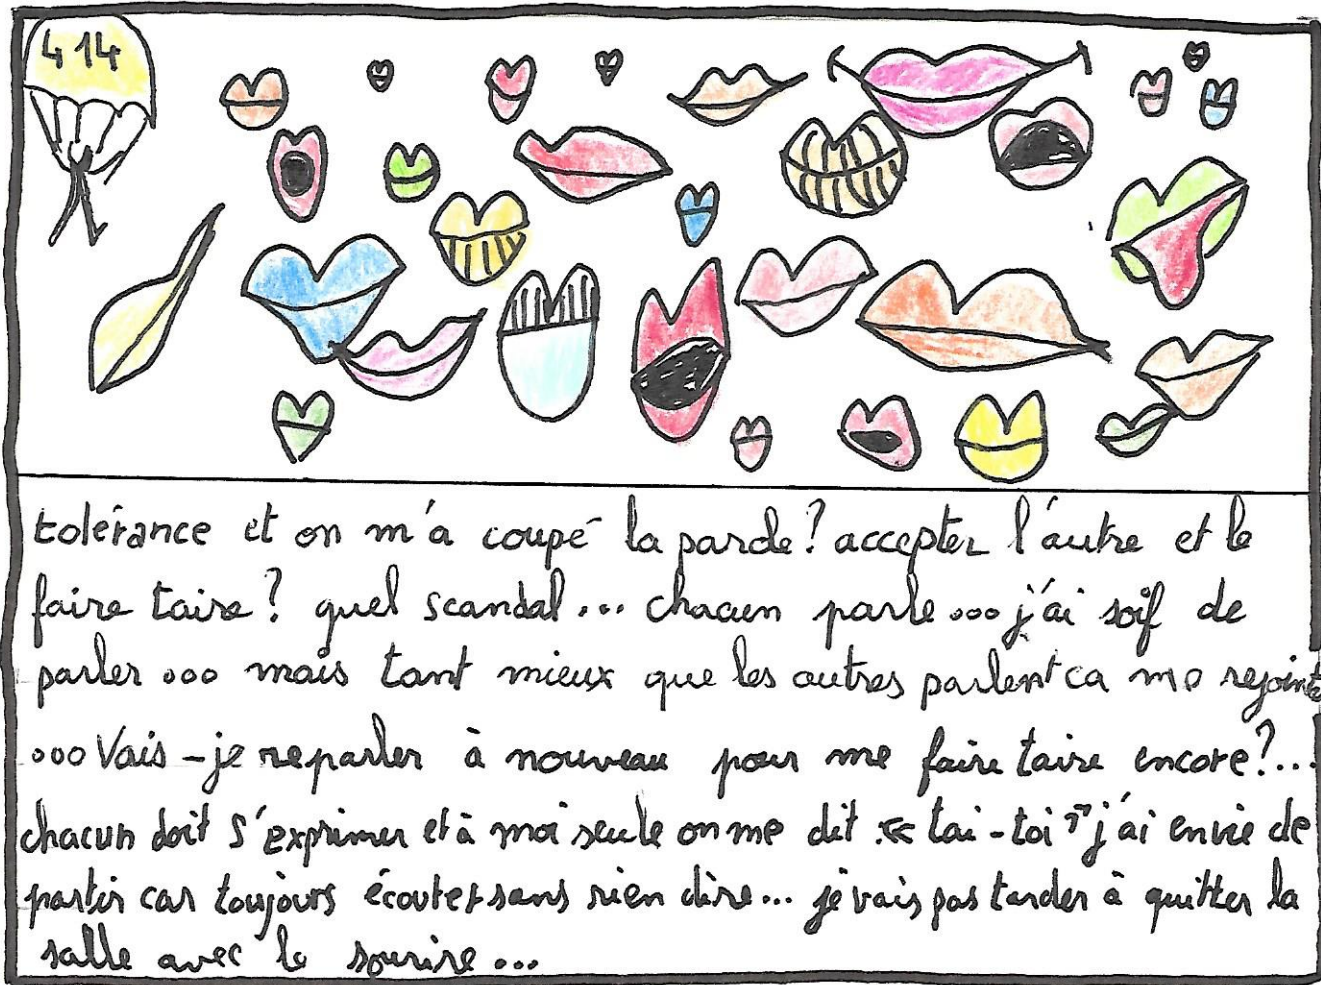 414
tolérance et on m'a coupé la parole? accepter l'autre et le
faire taire? quel scandal... chacun parle... j'ai soif de
parler... mais tant mieux que les autres parlent ca me rejointe
...Vais-je reparler à nouveau pour me faire taire encore?...
chacun doit s'exprimer et à moi seule on me dit «tai-toi" j'ai envie de
partir car toujours écouter sans rien dire... je vais pas tarder à quitter la
salle avec le sourire...